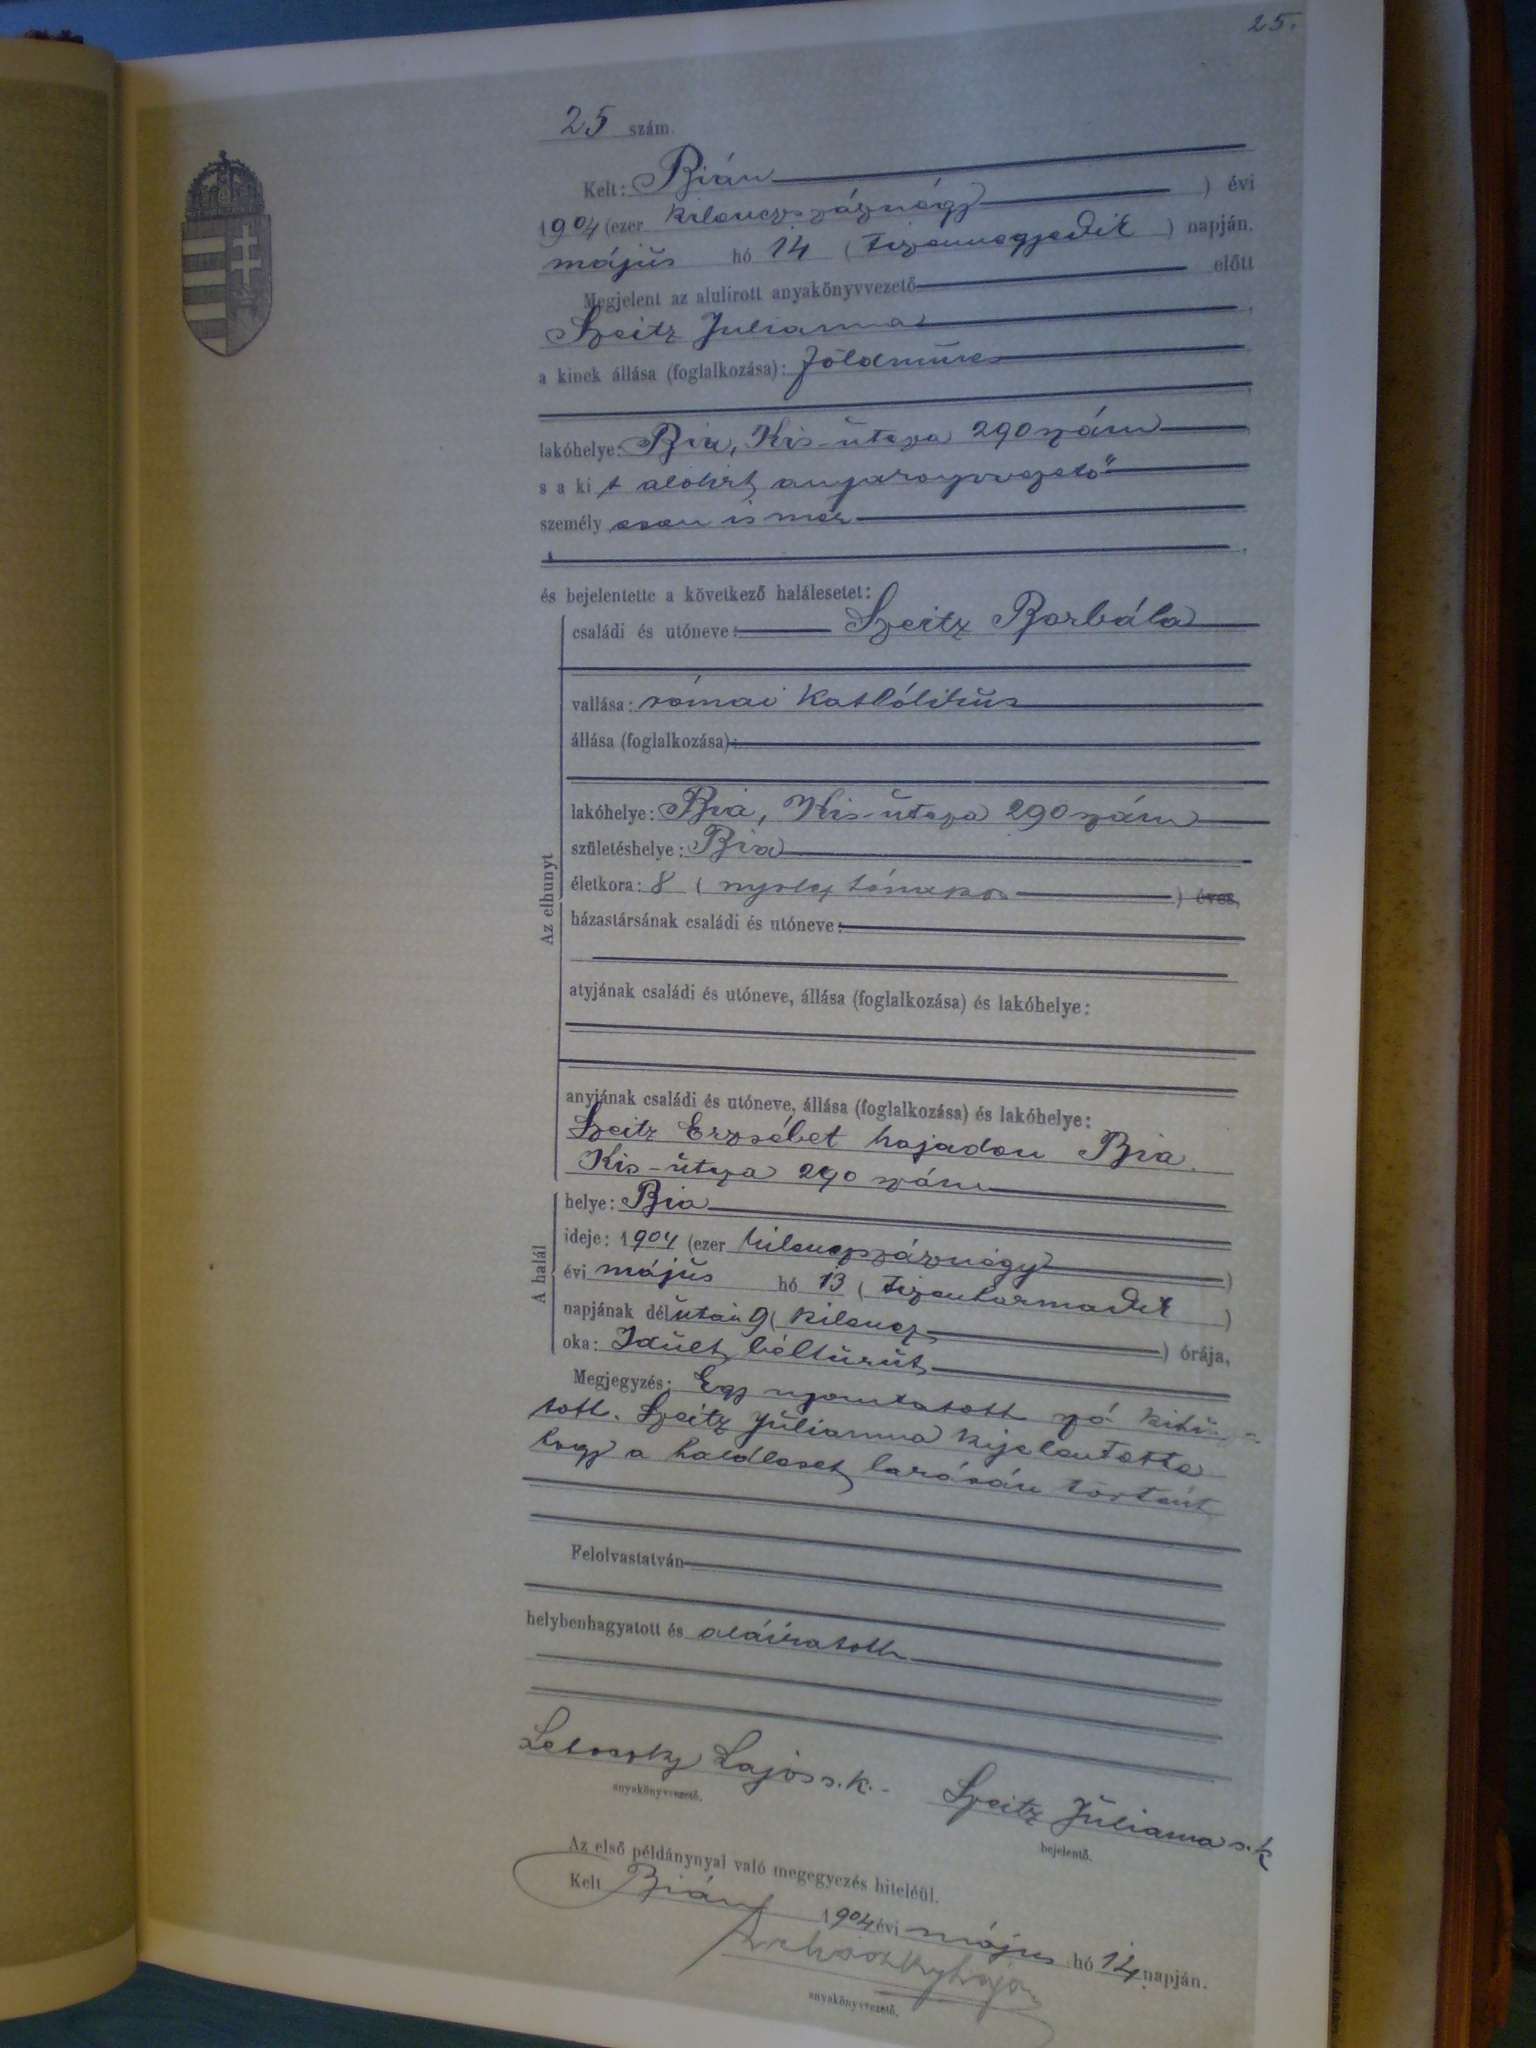 25.
25 szám.
Kelt: Bián
1904 (ezer kilenczszáznégy ) évi
május hó 14 ( tizennegyedik ) napján.
Megjelent az alulirott anyakönyvvezető előtt
Szeitz Julianna
a kinek állása (foglalkozása): földműves
lakóhelye: Bia, Kis-útcza 290 szám
s a ki t alólirt anyakönyvvezető
személy esen ismer
és bejelentette a következő halálesetet:
Az elhunyt
családi és utóneve: Szeitz Borbála
vallása: római katholikus
állása (foglalkozása):
lakóhelye: Bia, Kis-útcza 290 szám
születéshelye: Bia
életkora: 8 ( nyolcz hónapos ) éves,
házastársának családi és utóneve:
atyjának családi és utóneve, állása (foglalkozása) és lakóhelye:
anyjának családi és utóneve, állása (foglalkozása) és lakóhelye:
Szeitz Erzsébet hajadon Bia
Kis-útcza 290 szám
A halál
helye: Bia
ideje: 1904 (ezer kilenczszáznégy )
évi május hó 13 ( tizenharmadik )
napjának dél után 9 ( kilencz ) órája,
oka: Idült bélhurut
Megjegyzés: Egy nyomtatott szó
Szeitz Julianna kijelentette
hogy a haláleset lakásán történt
Felolvastatván
helybenhagyatott és aláiratott
Lajos s.k. Szeitz Julianna s.k
anyakönyvvezető. bejelentő.
Az első példánynyal való megegyezés hiteléül.
Kelt Bián 1904 évi május hó 14 napján.
anyakönyvvezető.